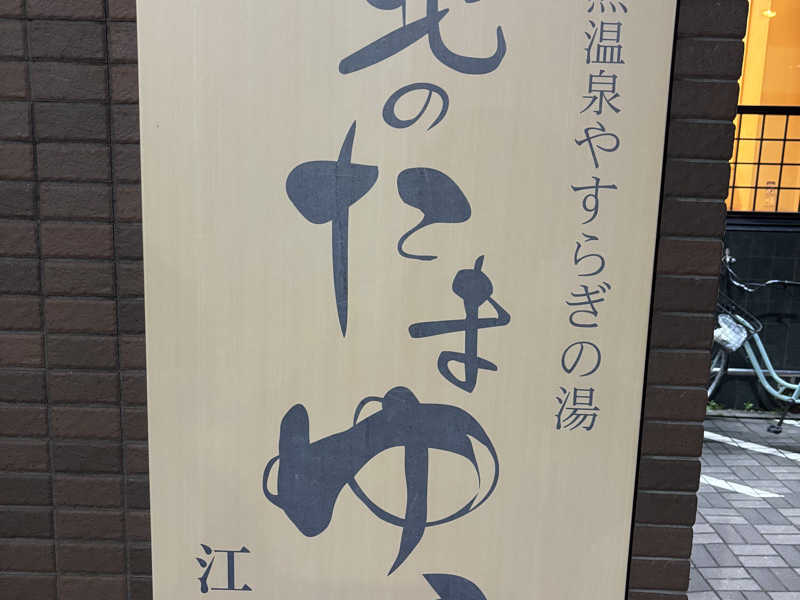 温泉やすらぎの湯
北のたまゆ
江